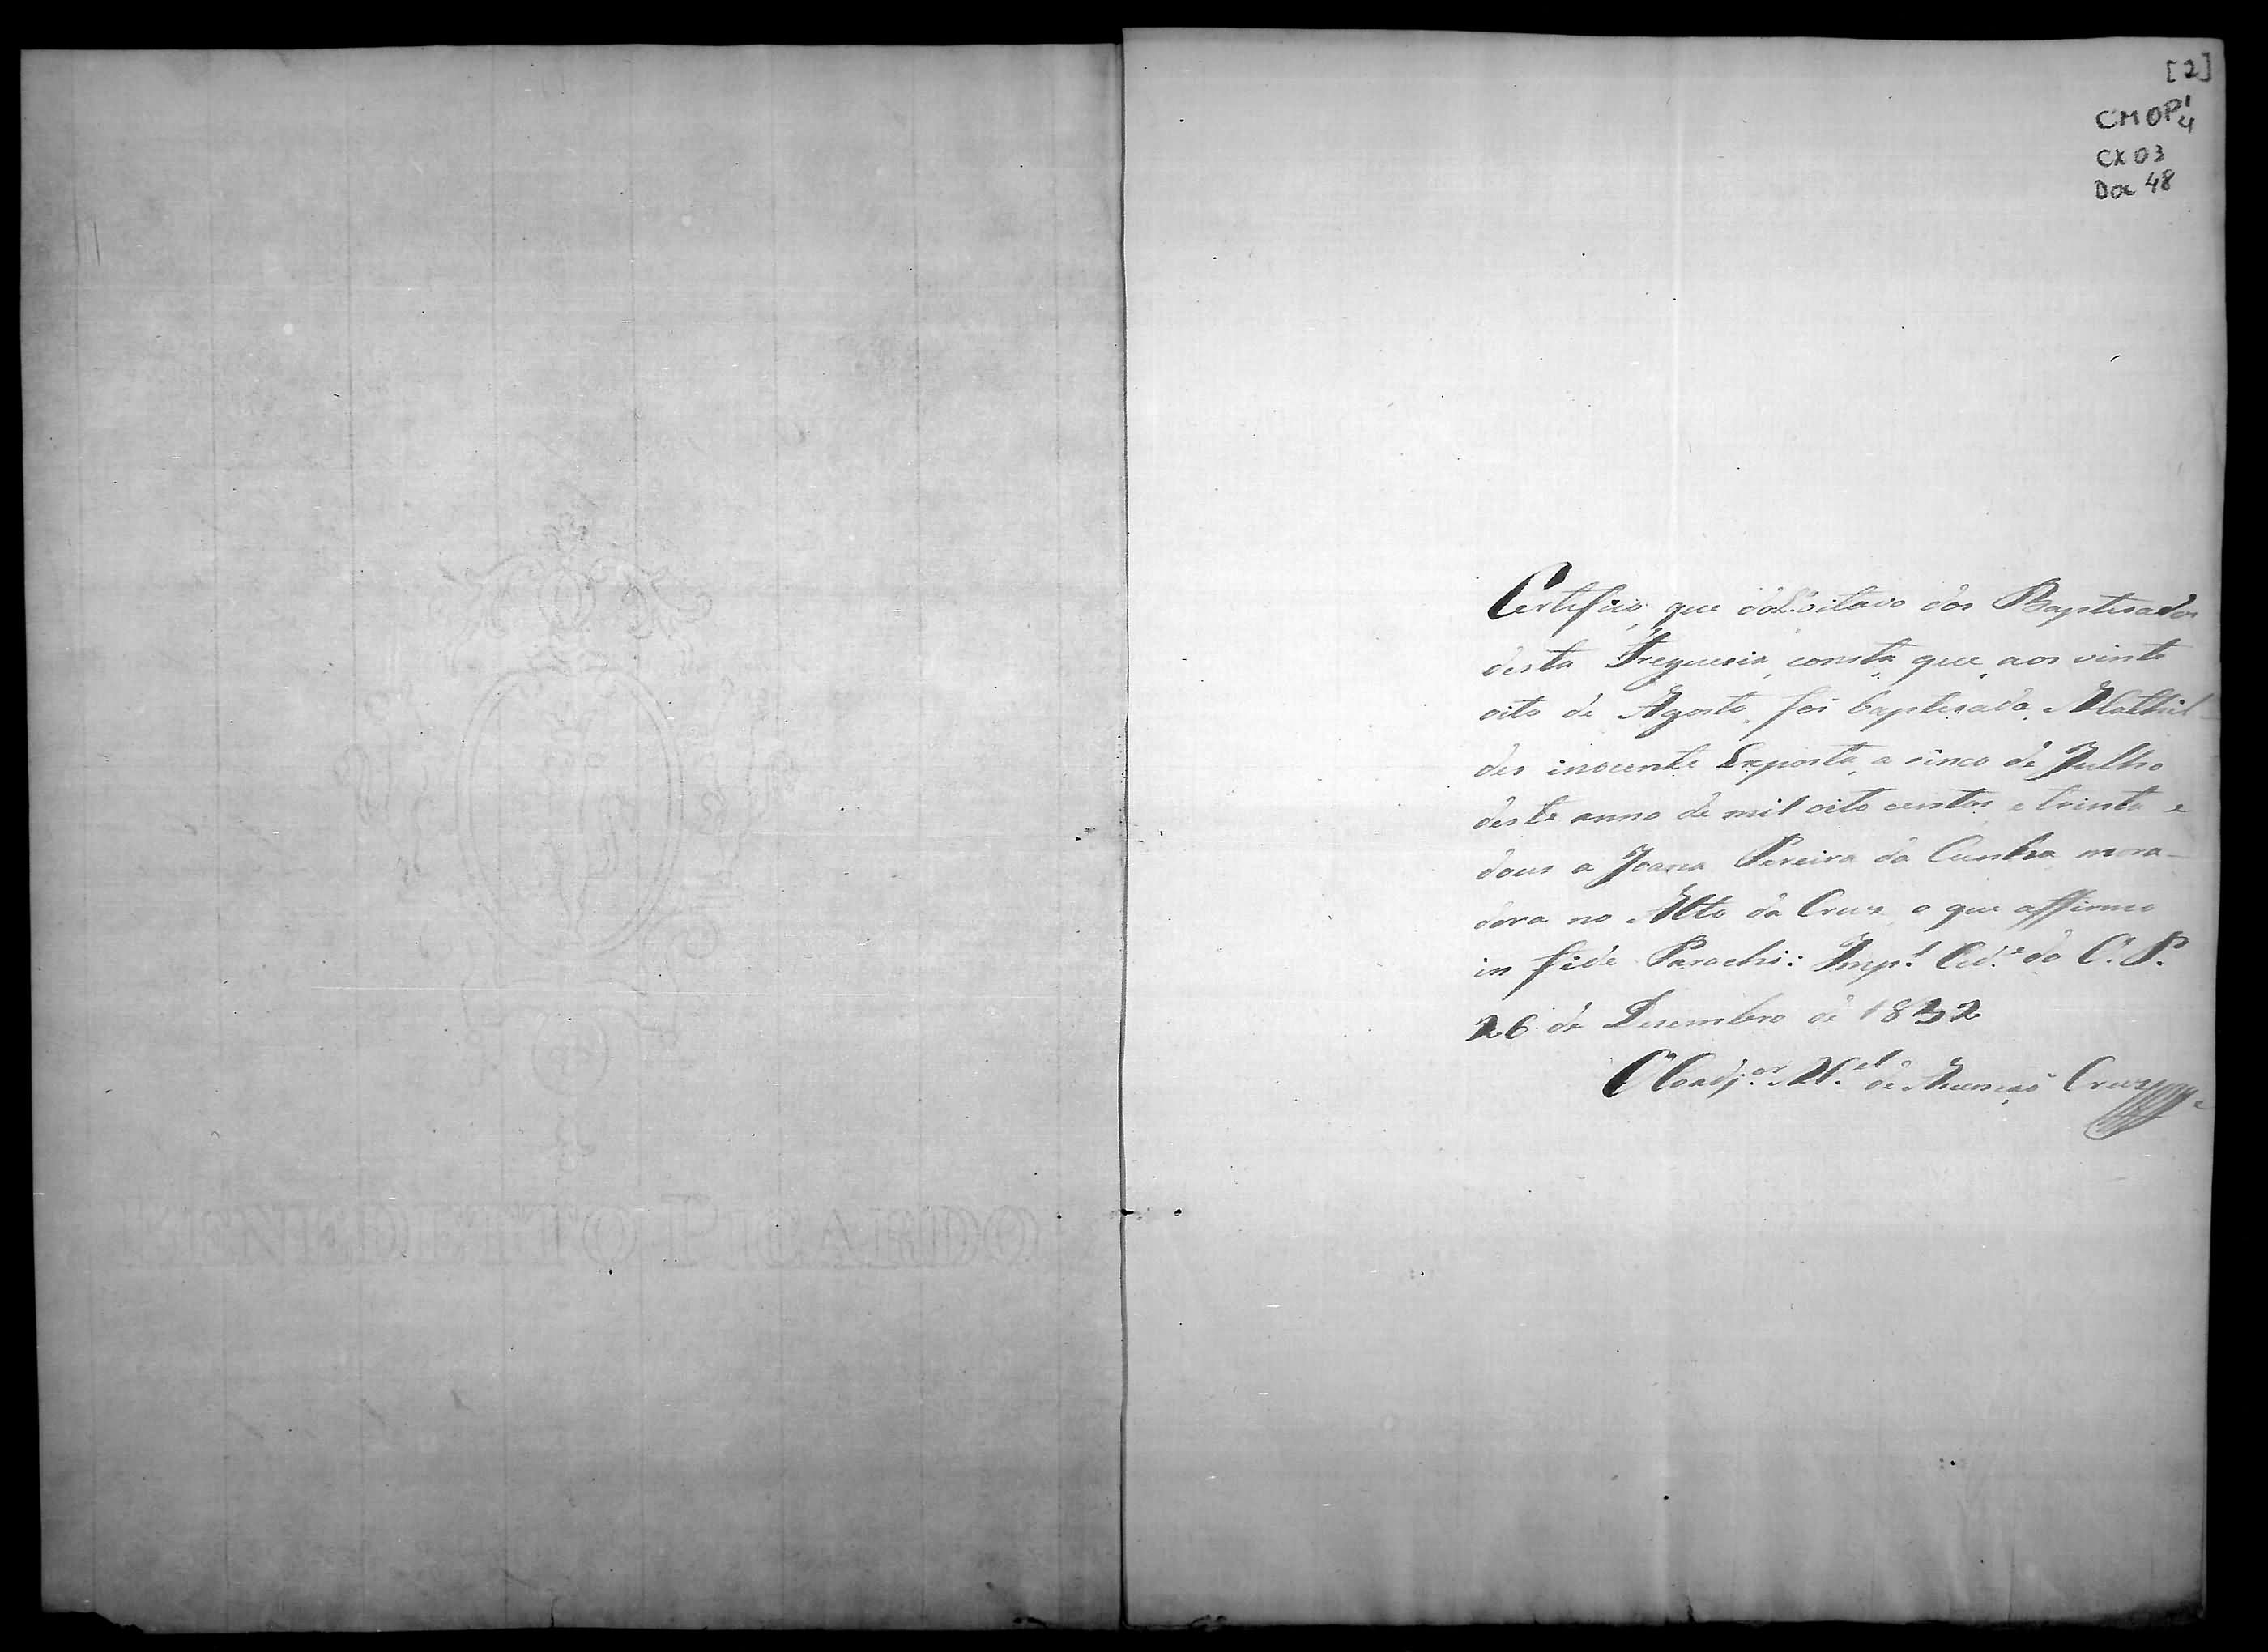 [2]
CMOP 1/4
CX 03
Doc 48
Certifico que do L.º oitavo dos Baptisados
desta Freguesia, consta, que, aos vinte
oito de Agosto, foi baptisada Mathil-
des inocente Exposta, a sinco de Julho
deste anno de mil oito centos e trinta e
dous a Joana Pereira da Cunha mora-
dora no Alto da Cruz, o que affirmo
in fide Parochi: Imp.l Cid.e do O. P.
26 de Desembro de 1832
O Coadj.or M.el de Cruz